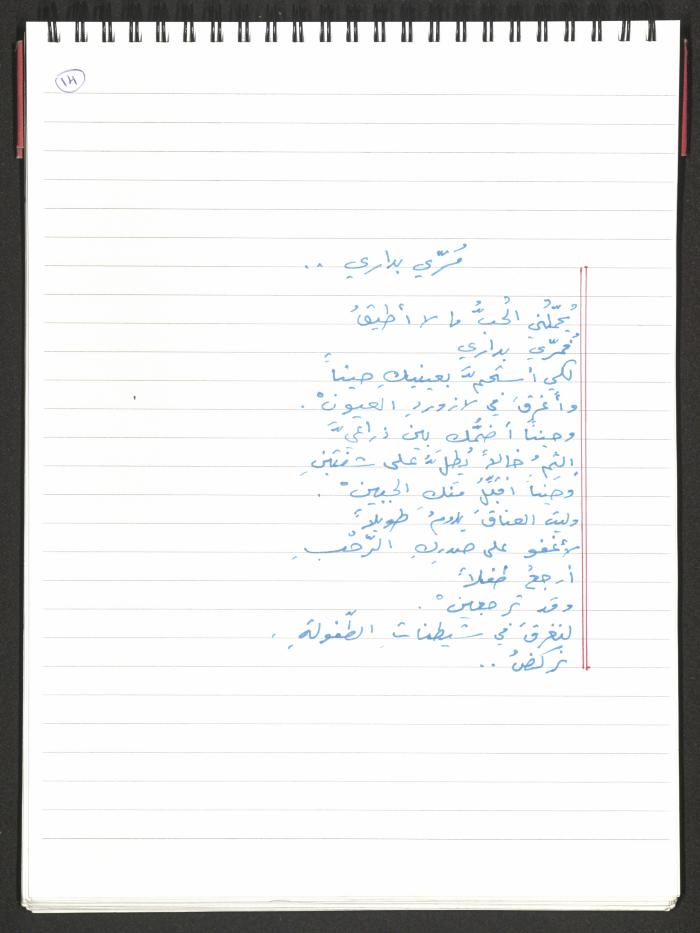 مُرّي بداري ..
يُحمّلُني الحُبُّ ما لا أُطيقُ
فمُرّي بداري
لكي أستحمَّ بعينيكِ حيناً
وأغرقَ في لازوردِ العيونْ .
وحيناً أضمُّك بين ذراعيَّ
ألثمُ خالاً يُطلُّ على شفتينِ
وحيناً أقبّلُ منكِ الجبينْ .
وليتَ العناقَ يدومُ طويلاً
لأغفو على صدركِ الرّحْبِ
أرجعُ طفلاً
وقد ترجعينْ .
لنغرقَ في شيطناتِ الطّفولةِ .
نركضُ ..